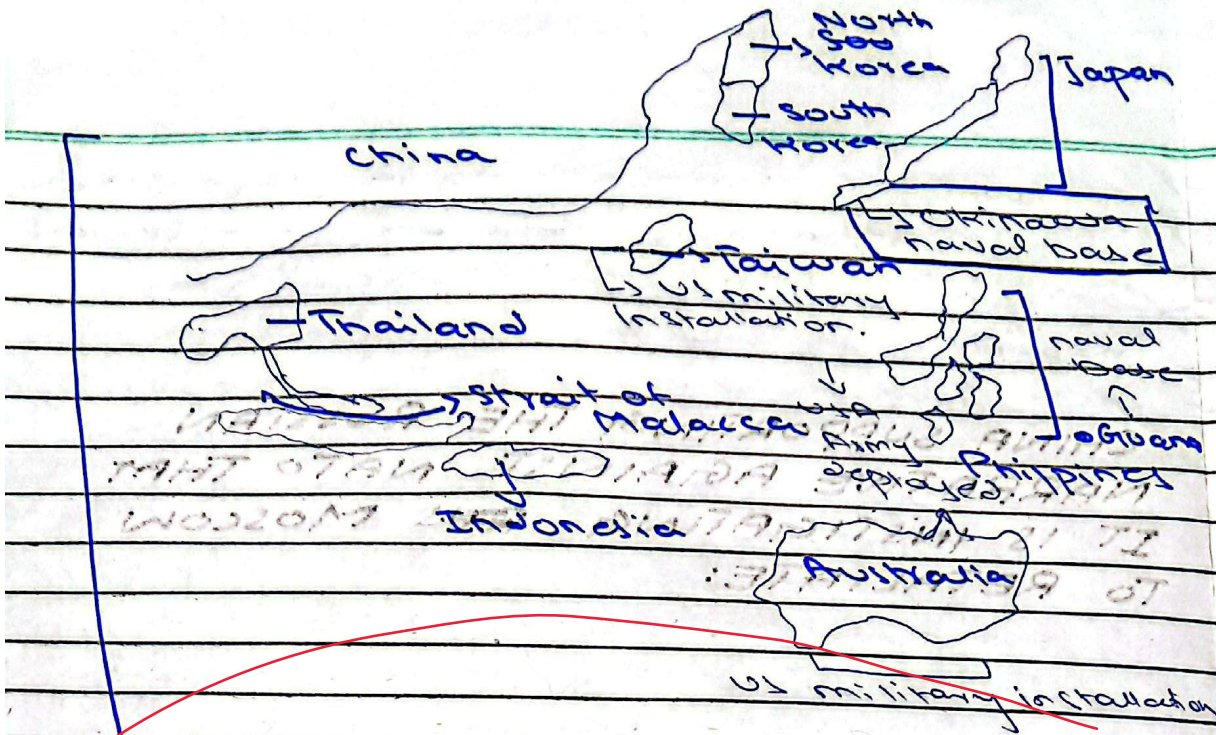 North
Soo
Korea
Japan
South
Korea
China
Okinawa
naval base
Taiwan
US military
Installation.
Thailand
naval
base
Guam
Strait of
Malacca
USA
Army
deployed.
Philppines
Indonesia
Australia
US military installation